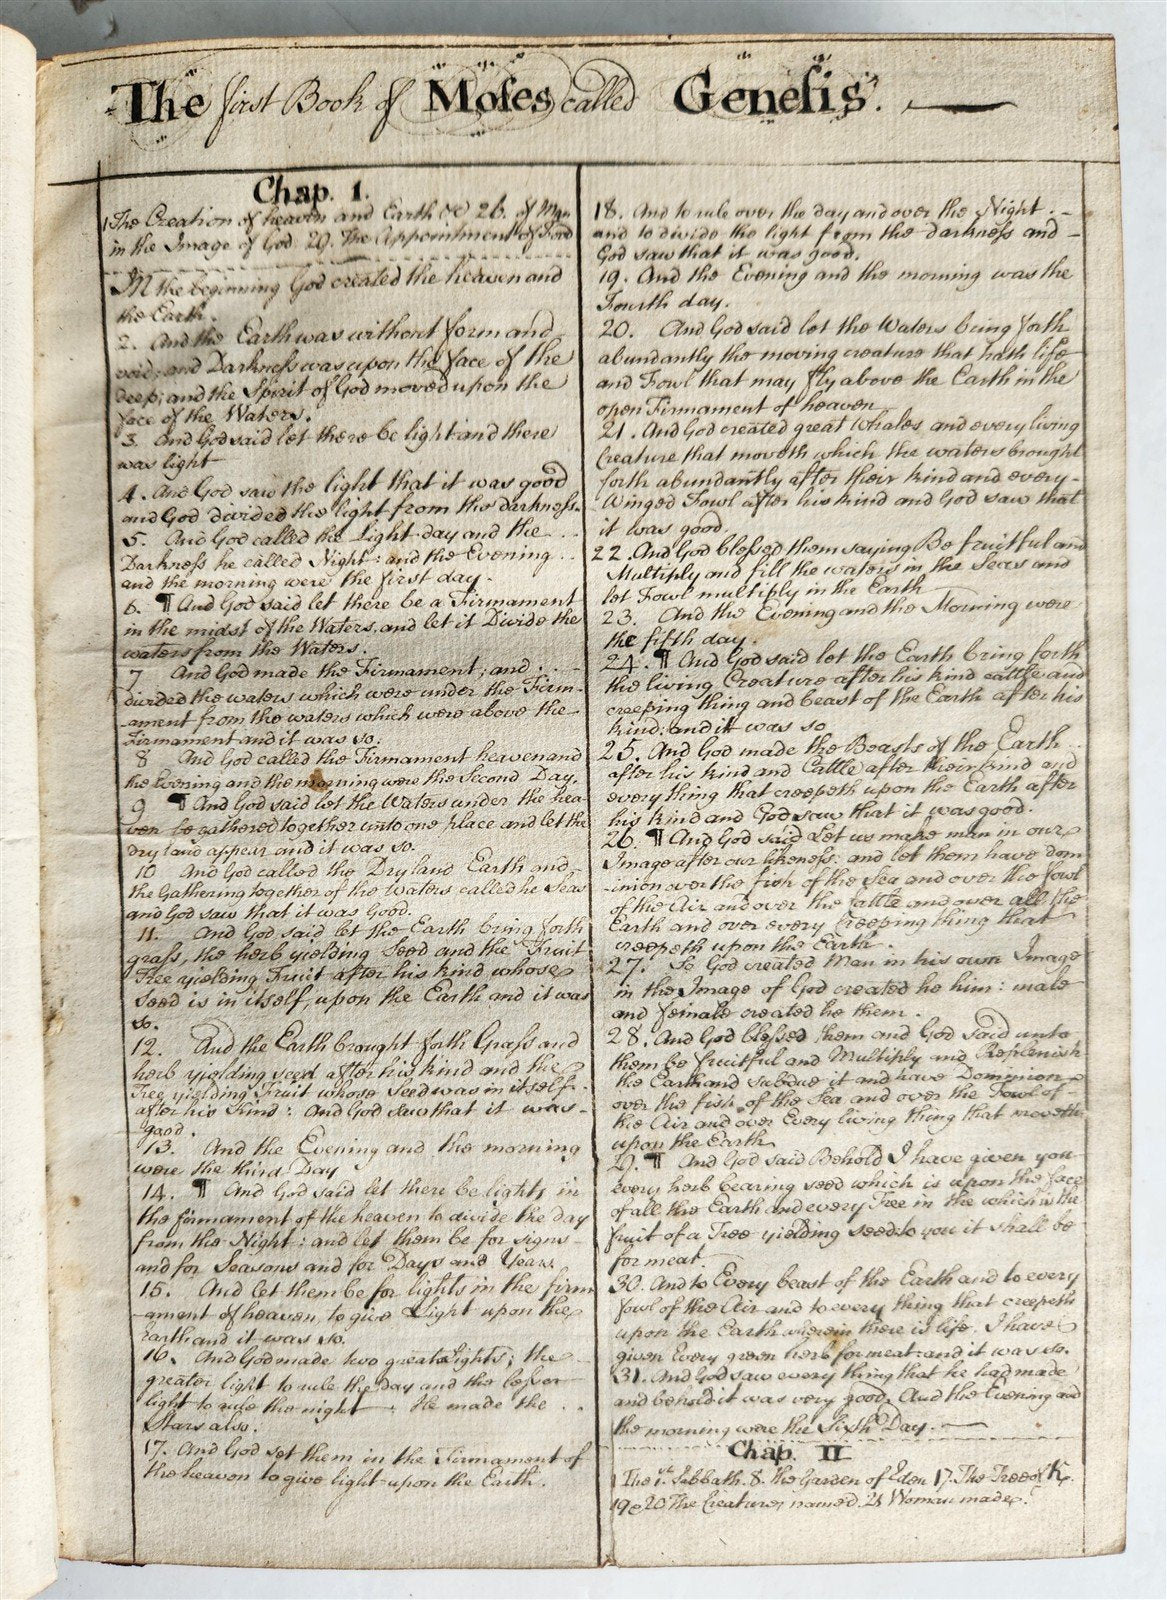 The first Book of Moses called Genesis.
Chap. 1.
1 The Creation of heaven and Earth &c 26. of Man
in the Image of God 29. The Appointment of Food
IN the beginning God created the heaven and
the Earth.
2. And the Earth was without form and
void; and Darkness was upon the face of the
deep; and the Spirit of God moved upon the
face of the Waters.
3. And God said let there be light and there
was light
4. And God saw the light that it was good
and God divided the light from the darkness.
5. And God called the Light day and the
Darkness he called Night: and the Evening
and the morning were the first day.
6. ¶ And God said let there be a Firmament
in the midst of the Waters, and let it Divide the
waters from the Waters.
7 And God made the Firmament; and
divided the waters which were under the Firm-
ament from the waters which were above the
Firmament and it was so.
8 And God called the Firmament heaven and
the Evening and the morning were the Second Day.
9 ¶ And God said let the Waters under the hea-
ven be gathered together unto one place and let the
dry land appear and it was so.
10 And God called the Dry land Earth and
the Gathering together of the Waters called he Seas
and God saw that it was Good.
11. And God said let the Earth bring forth
grass, the herb yielding Seed and the Fruit
Tree yielding Fruit after his kind whose
Seed is in itself, upon the Earth and it was
so.
12. And the Earth brought forth Grass and
herb yielding seed after his kind and the
Tree yielding Fruit whose Seed was in itself
after his Kind: And God saw that it was
good.
13. And the Evening and the morning
were the third Day
14. ¶ And God said let there be lights in
the firmament of the heaven to divide the day
from the Night: and let them be for signs
and for Seasons and for Days and Years.
15. And let them be for lights in the firm
ament of heaven, to give Light upon the
Earth and it was so.
16. And God made two great Lights; the
greater light to rule the Day and the lesser
light to rule the night: He made the
Stars also.
17. And God set them in the Firmament of
the heaven to give light upon the Earth.
18. And to rule over the day and over the Night
and to divide the light from the darkness and
God saw that it was good.
19. And the Evening and the morning was the
Fourth day.
20. And God said let the Waters bring forth
abundantly the moving creature that hath life
and Fowl that may fly above the Earth in the
open Firmament of heaven
21. And God created great Whales and every living
Creature that moveth which the waters brought
forth abundantly after their kind and every
Winged Fowl after his kind and God saw that
it was good.
22. And God blessed them saying Be fruitful and
Multiply and fill the waters in the Seas and
let Fowl multiply in the Earth
23. And the Evening and the Morning were
the fifth day.
24. ¶ And God said let the Earth bring forth
the living Creature after his kind cattle and
creeping thing and beast of the Earth after his
kind: and it was so
25. And God made the Beasts of the Earth
after his kind and Cattle after their kind and
every thing that creepeth upon the Earth after
his kind and God saw that it was good.
26. ¶ And God said Let us make man in our
Image after our likeness: and let them have dom
-inion over the fish of the Sea and over the fowl
of the Air and over the Cattle and over all the
Earth and over every Creeping thing that
creepeth upon the Earth.
27. So God created Man in his own Image
in the Image of God created he him: male
and female created he them.
28. And God blessed them and God said unto
them be fruitful and Multiply and Replenish
the Earth and subdue it and have Dominion
over the fish of the Sea and over the Fowl of
the Air and over Every living thing that moveth
upon the Earth
29. ¶ And God said Behold I have given you
every herb bearing seed which is upon the face
of all the Earth and every Tree in the which is the
fruit of a Tree yielding seed: to you it shall be
for meat.
30. And to Every beast of the Earth and to every
fowl of the Air and to every thing that creepeth
upon the Earth wherein there is life. I have
given Every green herb for meat: and it was so.
31. And God saw every thing that he had made
and behold it was very good. And the Evening and
the morning were the Sixth Day.
Chap. II
1 The 1st Sabbath. 8. the Garden of Eden 17. The Tree of K.
19 & 20 The Creatures named. 21 Woman made.